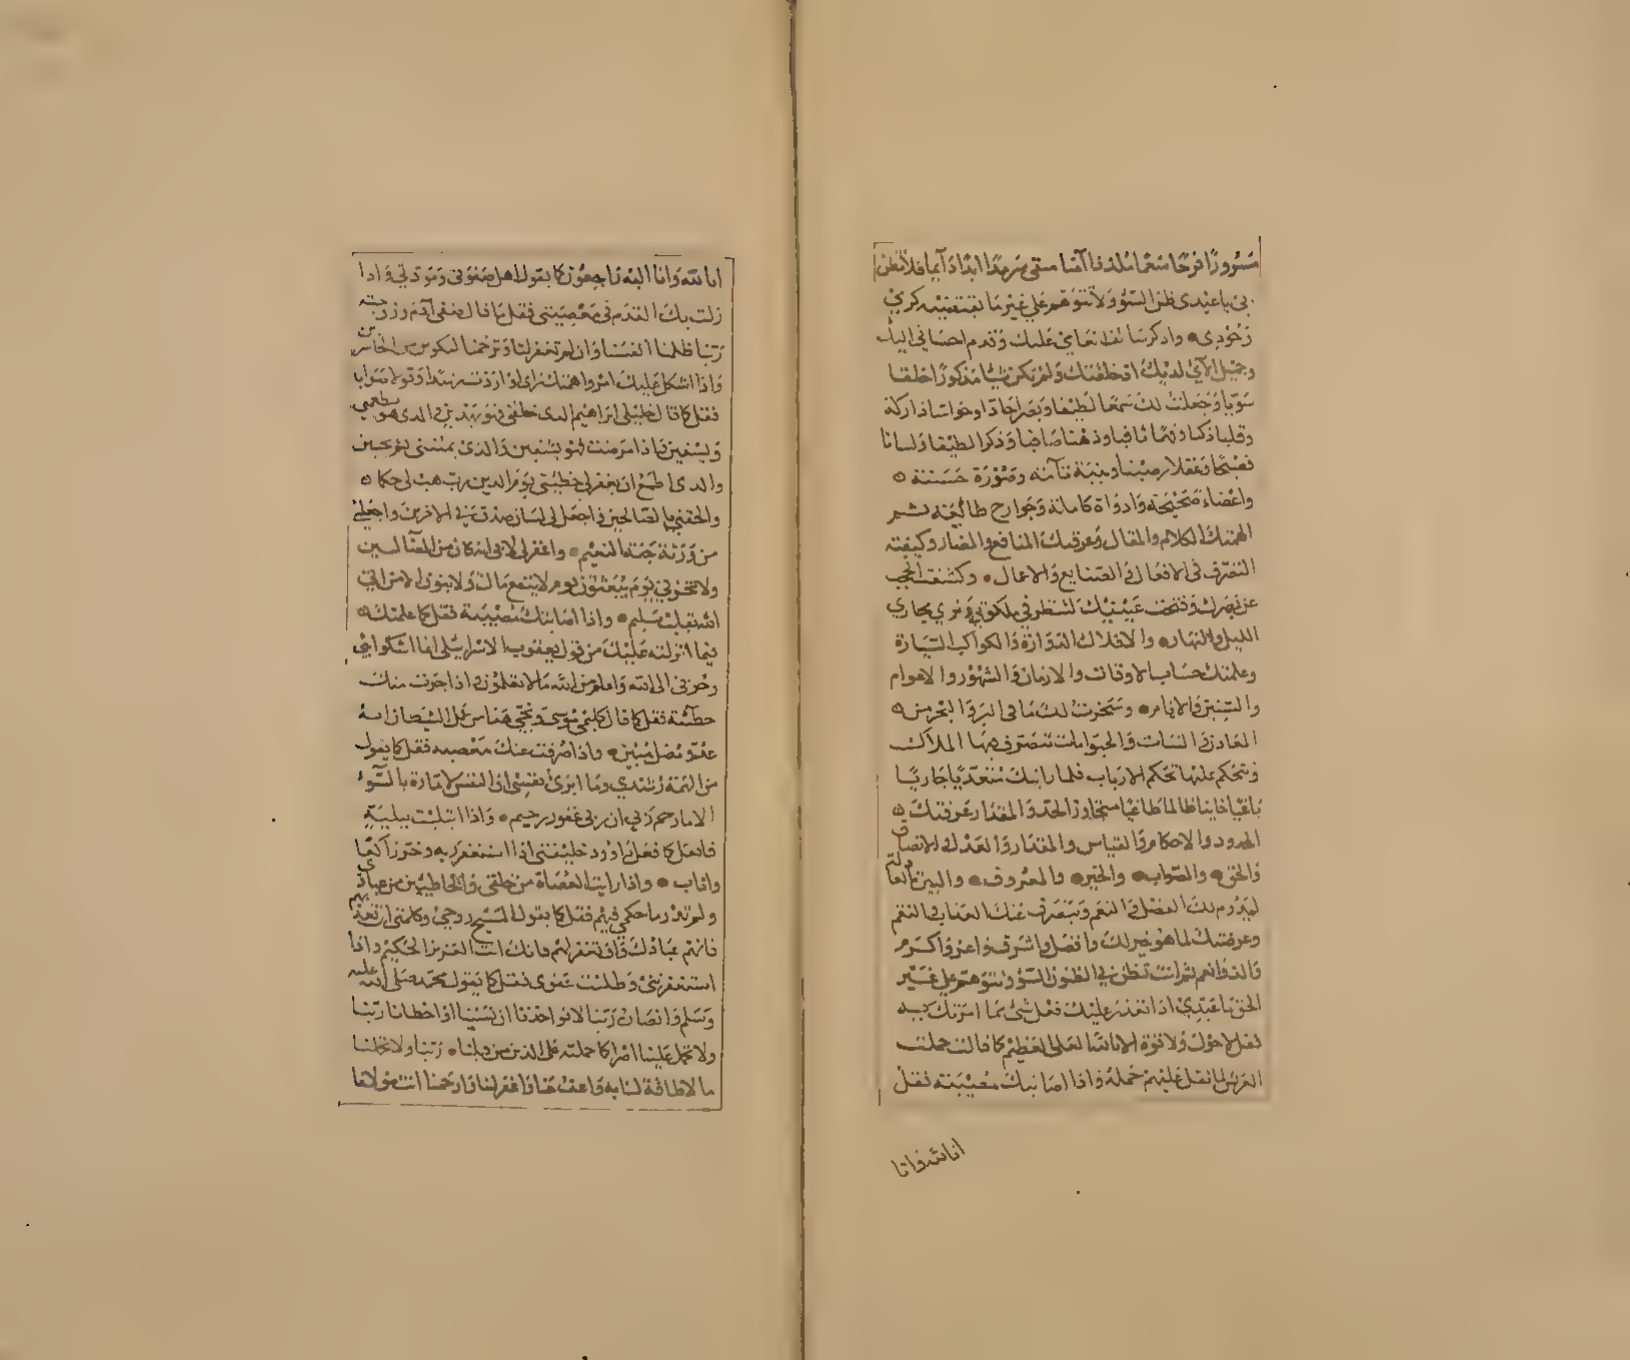 مسرورًا فرحًا منعمًا ملذذا آمنا مبقى سرمدًا ابدًا دآيما فلا تظن
بي يا عبدي ظن السوء ولا تتوهم علي غير ما يقتضيه كرمي
وجودي واذكر سالف انعامي عليك وقديم احساني اليك
وجميل الآئي لديك اذ خلقتك ولم تكن شيئا مذكورًا خلقا
سويا وجعلت لك سمعا لطيفا وبصرا حادا وحواسا داركة
وقلبا ذكيا وفهما ثاقبا وذهنا صافيا وفكرا لطيفا ولسانا
فصيحًا وعقلا رصينا وبنية تآمة وصورة حسنة
واعضاء صحيحة وادواة كاملة وجوارح طائعة ثم
الهمتك الكلام والمقال وعرفتك المنافع والمضار وكيفية
التصرف في الافعال في الصنايع والاعمال وكشفت الحجب
عن بصرك وفتحت عينيك لتنظر في ملكوتي وترى مجاري
الليل والنهار والافلاك الدوارة والكواكب السيارة
وعلمتك حساب الاوقات والازمان والشهور والاعوام
والسنين والايام وسخرت لك ما في البر والبحر من
المعادن والنبات والحيوانات تتصرف فيها الملاك
وتتحكم عليها تحكم الارباب فلما رايتك متعديا جاريا
باغيا خاينا ظالما طاغيا متجاوز الحد والمقدار عرفتك
الحدود والاحكام والقياس والمقدار والعدل والانصاف
والحق والصواب والخير والمعروف والسيرة العادلة
ليدوم لك الفضل والنعم ويتصرف عنك العذاب والنقم
وعرضتك لما هو خير لك وافضل واشرف واعز واكرم
والذ وانعم ثم انت تظن بي الظنون السوء وتتوهم علي غير
الحق يا عبدي اذا تعذر عليك فعل شئ مما امرتك به
فقل لا حول ولا قوة الا بالله العلى العظيم كما قالت حملت
العرش لما ثقل عليهم حمله واذا اصابتك مصيبة فقل
انا لله وانا
انا لله وانا اليه راجعون كما يقول اهل صفوتى ومودتي واذا
زلت بك القدم في معصيتي فقل ما قال صفى آدم وزوجته
ربنا ظلمنا انفسنا وان لم تغفر لنا وترحمنا لنكونن من الخاسرين
واذا اشكل عليك امر واهمك راى او اردت رشدا وقولا صوابا
فقل كما قال خليلى ابراهيم الذى خلقنى فهو يهدين والذى هو يطعمنى
ويسقين واذا مرضت فهو يشفين والذى يميتنى ثم يحيين
والذى اطمع ان يغفر لى خطيئتي يوم الدين رب هب لى حكما
والحقني بالصالحين واجعل لى لسان صدق في الاخرين واجعلني
من ورثة جنة النعيم واغفر لى لابى انه كان من الضآلين
ولا تخزني يوم يبعثون يوم لا ينفع مال ولا بنون الا من اتي
الله بقلب سليم واذا اصابتك مصيبة فقل كما علمتك
فيما انزلته عليك من قول يعقوب الاسراييلى انما اشكوا بثي
وحزنى الى الله واعلم من الله ما لا تعلمون واذا جرت منك
خطئة فقل كما قال كليمى موسى ونجي هذا من عمل الشيطان انه
عدو مضل مبين واذا صرفت عنك معصيه فقل كما يقول
وما ابرئ نفسى ان النفس لامارة بالسوء
الا ما رحم ربي ان ربى غفور رحيم واذا ابتليت ببلية
فافعل كما فعل داوود خليفتى اذا استغفر ربه وخر راكعا
واناب واذا رايت العصاة من خلقى والخاطيين من عبادى
ولم تدر ما حكمي فيهم فقل كما يقول المسيح روحي وكلمتى ان تعذبهم
فانهم عبادك وان تغفر لهم فانك انت العزيز الحكيم واذا
استغفرتنى وطلبت عفوى فقل كما يقول محمد صلى الله عليه
وسلم وانصاره ربنا لا تواخذنا ان نسينا او اخطانا ربنا
ولا تحمل علينا اصرا كما حملته على الذين من قبلنا ربنا ولا تحملنا
ما لا طاقة لنا به واعف عنا واغفر لنا وارحمنا انت مولانا